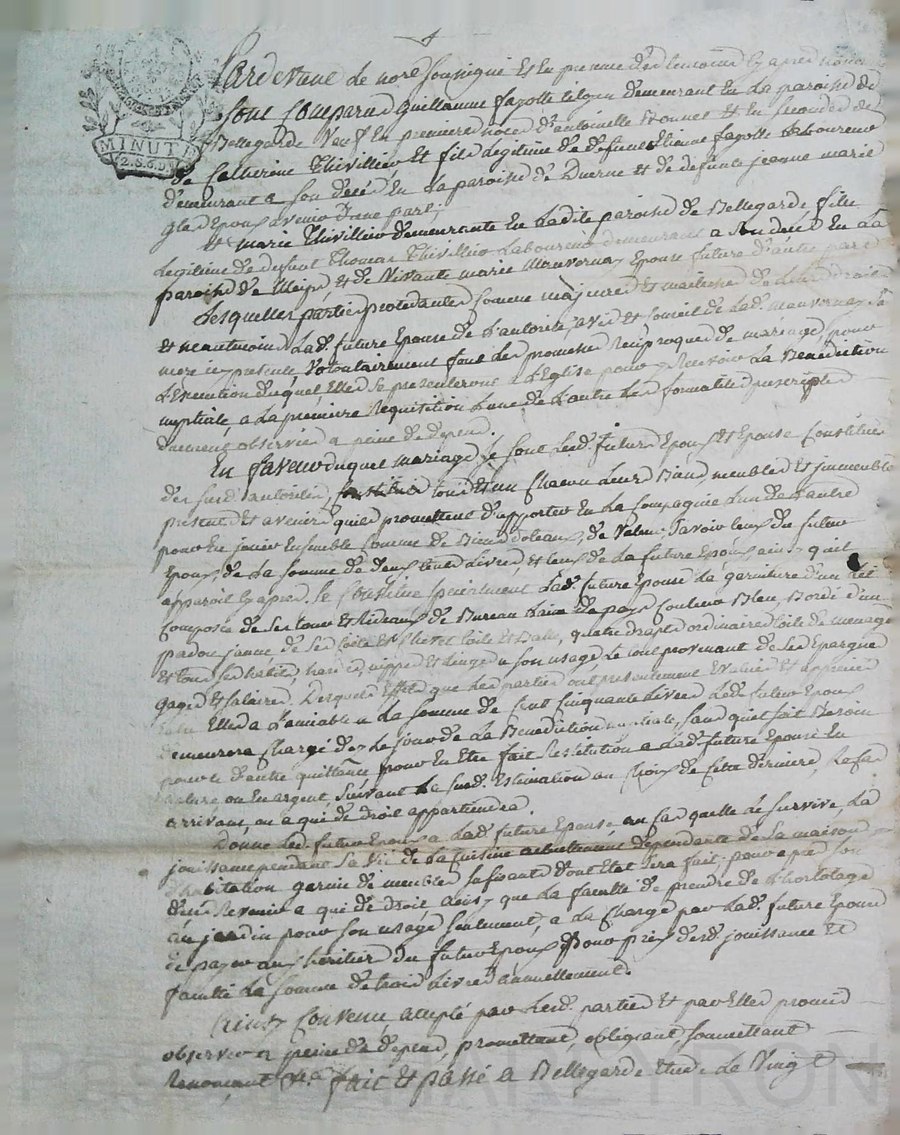 Pardevant le no.re soussigné et en presence des temoins cy apres nommés
sont comparus Guillaume fayolle tilyeu demeurant en la paroisse de
MINUTE
2.S.6.D
Bellegarde veuf en premiere noce d'antoinelle Bonnet et en secondes de
de Catherine Thivillier et fils legitime de defunt Etienne fayolle laboureur
demeurant a son decé en la paroisse de Duerne et de defunte jeanne marie
epoux avenir d'une part;
et marie Thivillier demeurante en ladite paroisse de Bellegarde fille
legitime de defunt Thomas Thivillier laboureur demeurant a son decé en la
paroisse de Meys et de vivante marie Mauvernay epouse future d'autre part
Lesquelles parties procedantes comme majeures et maitresses de leurs droits
et neantmoins lad. future epouse de l'autorité, avis et conseil de lad. mauvernay sa
mere icy presente, volontairement font les promesses reciproques de mariage, pour
l'execution duquel elles se presenteront a l'Eglise pour y recevoir la Benediction
nuptiale a la premiere requisition l'une de l'autre les formalités prescriptes
duement observées a peine de depens.
En faveur duquel mariage se sont lesd. futurs epoux et epouse constitués
des susd. autorités, tous et un chacun leurs Biens, meubles et immeubles
presents et avenirs qu'ils promettent d'apporter en la compagnie l'un de l'autre
pour en jouir ensemble comme de Biens dotaux, de valeur; savoir ceux du futur
epoux, de la somme de deux cents livres et ceux de la future epouse, ainsy qu'il
apparoit cy apres. se constitue specialement lad. future epouse la garniture d'un lit
composée de ses tour et Rideaux de Bureau laine de pays couleur Bleu, Bordé d'un
padou jaune de ses coite et chevet toile et Balle, quatre draps ordinaires toile de menage
et tous ses habits, hardes, nippes et linges a son usage le tout provenant de ses epargnes
gages et salaires. Desquels effets que les parties ont presentement evalués et appreciés
entre elles a l'amiable a la somme de cent cinquante livres led. futur epoux
demeurera chargé dès le jour de la Benediction nuptiale, sans qu'il soit Besoin
pour ce d'autre quittance pour en etre fait restitution a lad. future epouse en
nature ou en argent, suivant la susd. estimation au choix de cette derniere, le cas
arrivant, ou a qui de droit appartiendra.
Donne led. futur epoux a lad. future epouse au cas quelle le survive, la
jouissance pendant sa vie de la cuisine actuellement dependante de sa maison
d'habitation garnie de meubles suffisants dont etat sera fait, pour apres son
deces revenir a qui de droit ainsy que la faculté de prendre de l'hortolage
au jardin pour son usage seulement, a la charge par lad. future epouse
de payer aux heritiers du futur epoux pour prix desd. jouissance et
faculté la somme de trois livres annuellement.
Ainsy convenu, accepté par lesd. parties et par elles promis
observer a peine de depens, promettant, obligeant soumettant
Renonçant &.a fait et passé a Bellegarde etude le vingt